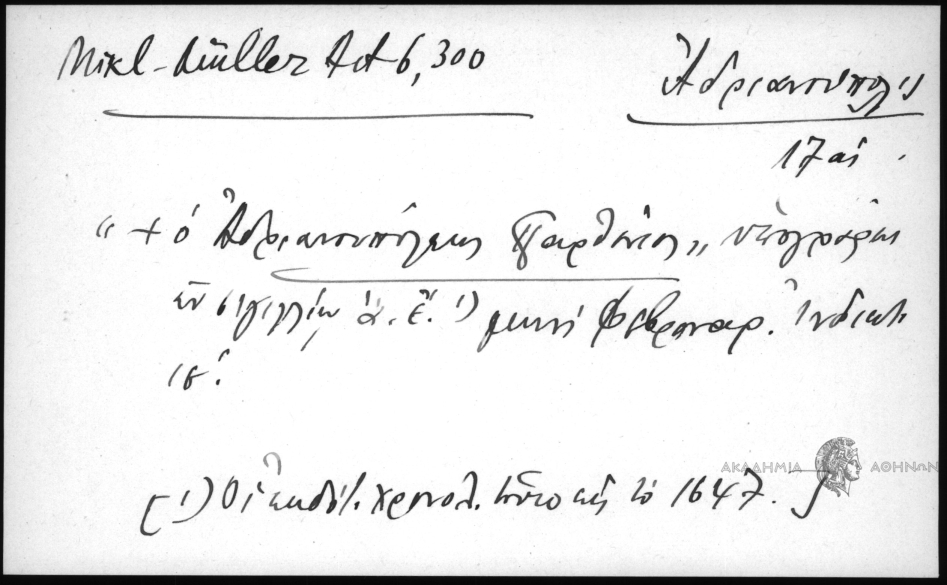 Mikl-Müller Act 6, 300
Ἀδριανούπολις
17 αἰ.
"+ ὁ Ἀδριανουπόλεως Παρθένιος" ὑπογράφει
ἐν σιγιλλίῳ ἀ. ἔ. 1) μηνὶ Φεβρουαρ. Ἰνδικτ.
ιε΄.
ΑΚΑΔΗΜΙΑ ΑΘΗΝΩΝ
[1) Οἱ ἐκδότ. χρονολ. τοῦτο εἰς τὸ 1647.]